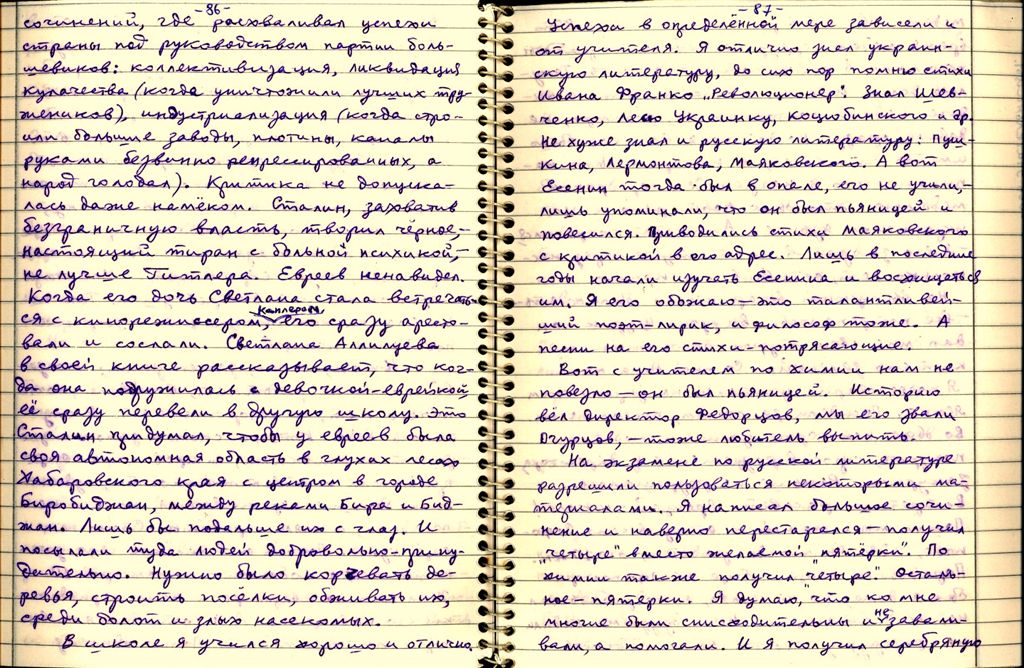 -86-
сочинений, где расхваливал успехи
страны под руководством партии боль-
шевиков: коллективизация, ликвидация
кулачества (когда уничтожили лучших тру-
жеников), индустриализация (когда стро-
или большие заводы, плотины, каналы
руками безвинно репрессированных, а
народ голодал). Критика не допуска-
лась даже намёком. Сталин, захватив
безграничную власть, творил чёрное,-
настоящий тиран с больной психикой,-
не лучше Гитлера. Евреев ненавидел.
Когда его дочь Светлана стала встречать-
ся с кинорежиссером, каплером, его сразу аресто-
вали и сослали. Светлана Аллилуева
в своей книге рассказывает, что ког-
да она подружилась с девочкой-еврейкой
её сразу перевели в другую школу. Это
Сталин придумал, чтобы у евреев была
своя автономная область в глухих лесах
Хабаровского края с центром в городе
Биробиджан, между реками Бира и Бид-
жан. Лишь бы подальше их с глаз. И
посылали туда людей добровольно-прину-
дительно. Нужно было корчевать де-
ревья, строить посёлки, обживать их,
среди болот и злых насекомых.
В школе я учился хорошо и отлично.
-87-
Успехи в определённой мере зависели и
от учителя. Я отлично знал украин-
скую литературу, до сих пор помню стихи
Ивана Франко „Революционер". Знал Шев-
ченко, Лесю Украинку, Коцюбинского и др.
Не хуже знал и русскую литературу: Пуш-
кина, Лермонтова, Маяковского. А вот
Есенин тогда был в опале, его не учили,-
лишь упоминали, что он был пьяницей и
повесился. Приводились стихи Маяковского
с критикой в его адрес. Лишь в последние
годы начали изучать Есенина и восхищаться
им. Я его обожаю - это талантливей-
ший поэт-лирик, и философ тоже. А
песни на его стихи - потрясающие.
Вот с учителем по химии нам не
повезло - он был пьяницей. Историю
вёл директор Федорцов, мы его звали
Огурцов, - тоже любитель выпить.
На экзамене по русской литературе
разрешили пользоваться некоторыми ма-
териалами. Я написал большое сочи-
нение и наверно перестарался - получил
„четыре" вместо желаемой „пятёрки". По
химии также получил „четыре". Осталь-
ное - пятерки. Я думаю, что ко мне
многие были снисходительны и не завали-
вали, а помогали. И я получил серебряную